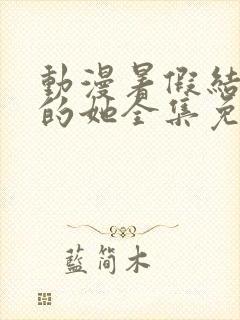 動漫暑假結
的她全集免
藍簡木